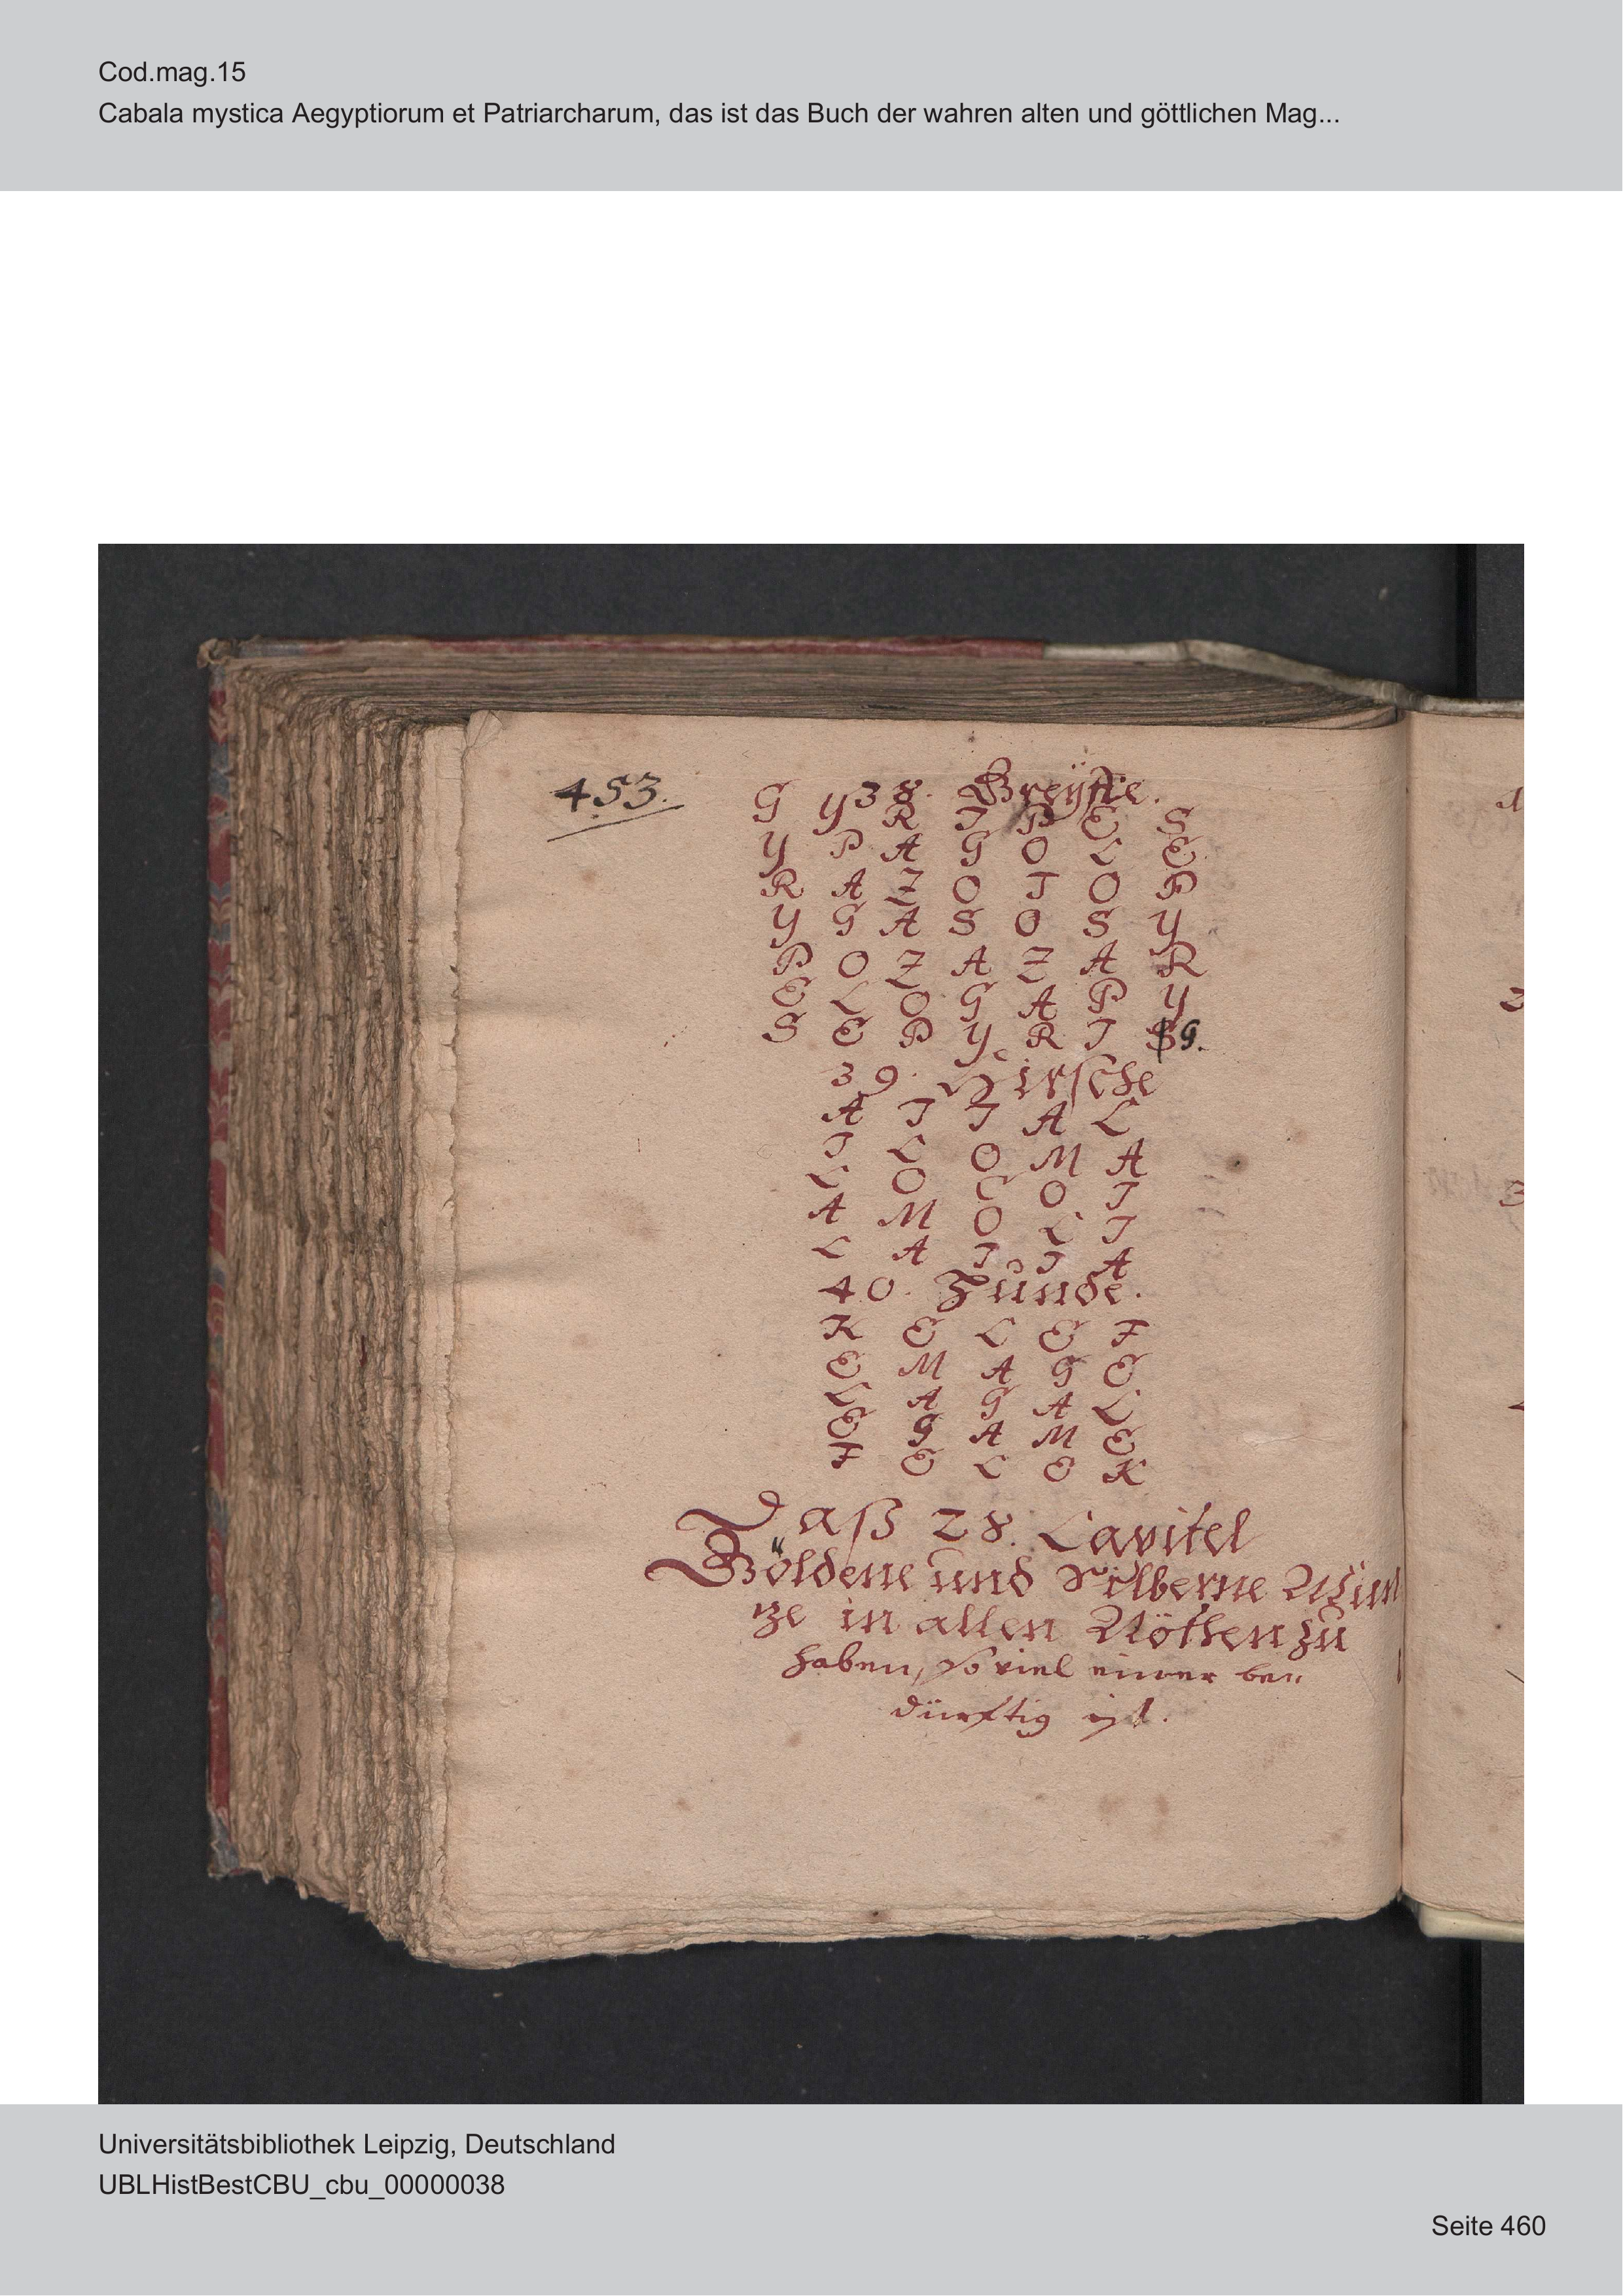 Cod.mag.15
Cabala mystica Aegyptiorum et Patriarcharum, das ist das Buch der wahren alten und göttlichen Mag...
453.
38. Greÿffe.
G Y R I P E S
Y P A G O L E
R A Z O T O P
Y G A S O S Y
P O Z A Z A R
E L O G A P Y
S E P Y R I G.
39. Hirsche
A I I A L
I L O M A
L O C O I
A M O L I
L A I I A
40. Hunde.
K E L E F
E M A G E
L A G A L
E G A M E
F E L E K
Daß 28. Capitel
Göldene und Silberne Mün
ze in allen Nöthen zu
haben, so viel einer be„
dürftig ist.
Universitätsbibliothek Leipzig, Deutschland
UBLHistBestCBU_cbu_00000038
Seite 460